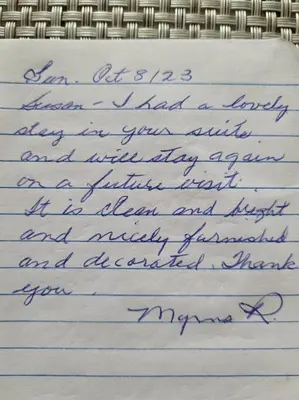 Sun. Oct 8/23
Susan - I had a lovely
stay in your suite
and will stay again
on a future visit.
It is clean and bright
and nicely furnished
and decorated. Thank
you.
Myrna R.